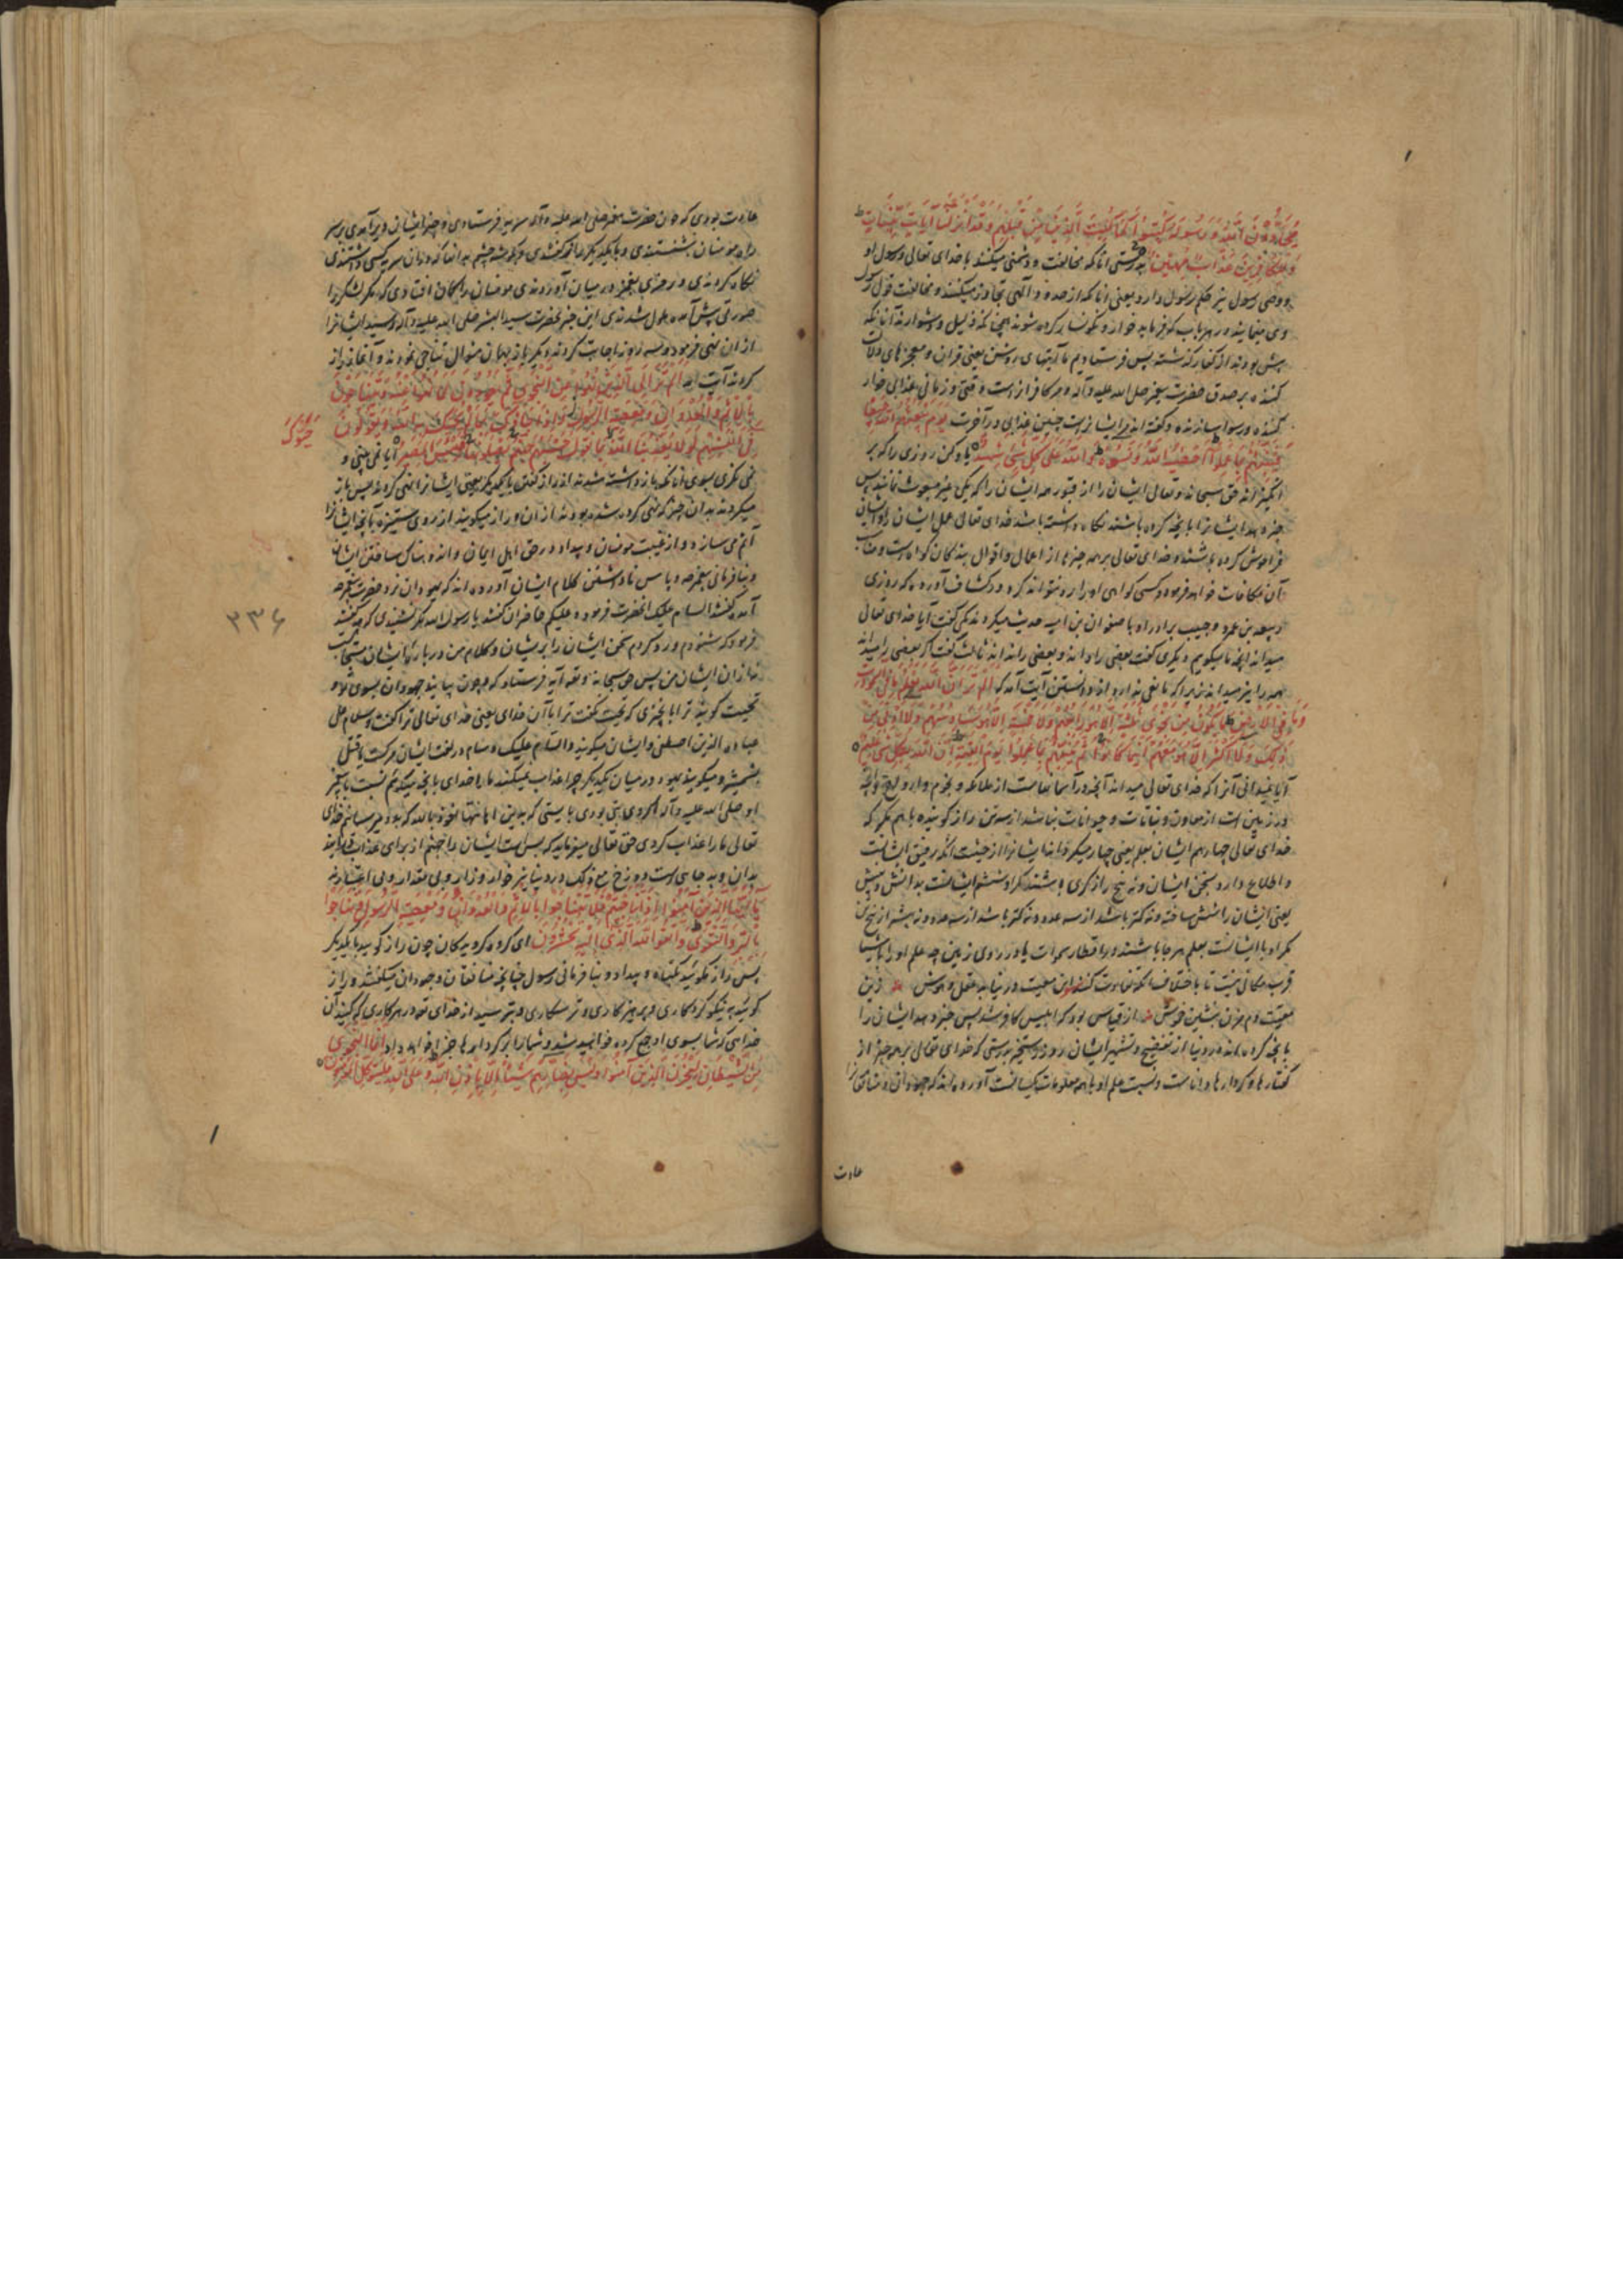 يُحَادُّونَ اللَّهَ وَرَسُولَهُ كُبِتُوا كَمَا كُبِتَ الَّذِينَ مِنْ قَبْلِهِمْ وَقَدْ أَنْزَلْنَا آيَاتٍ بَيِّنَاتٍ
وَلِلْكَافِرِينَ عَذَابٌ مُهِينٌ بدرستی آنانکه مخالفت و دشمنی میکنند با خدای تعالی و رسول او
و وصی رسول نیز حکم رسول دارد یعنی آنانکه از حدود آلهی تجاوز میکنند و مخالفت قول رسول
وی مینمایند در هر باب که فرماید خوار و نگونسار کرده شوند همچنانکه ذلیل و خوار شدند آنانکه
پیش بودند از کفار گذشته پس فرستادیم ما آیتهای روشن یعنی قران و معجزهای دلالت
کننده بر صدق حضرت پیغمبر صلی الله علیه وآله و مر کافران راست وقتی و زمانی عذابی خوار
کننده و رسوا سازنده و گفته اند مر ایشانراست چنین عذابی در آخرت يَوْمَ يَبْعَثُهُمُ اللَّهُ جَمِيعًا
فَيُنَبِّئُهُمْ بِمَا عَمِلُوا أَحْصَاهُ اللَّهُ وَنَسُوهُ وَاللَّهُ عَلَى كُلِّ شَيْءٍ شَهِيدٌ یاد کن روزی را که بر
انگیزاند حق سبحانه و تعالی ایشان را از قبور همه ایشان را که یکی غیر مبعوث نماند پس
خبر دهد ایشانرا بآنچه کرده باشند نگاه داشته باشد خدای تعالی عمل ایشان را و ایشان
فراموش کرده باشند و خدای تعالی بر همه چیزها از اعمال و اقوال بندگان گواه است و مناسب
آن مکافات خواهد فرمود و کسی گواهی او را رد نتواند کرد و در کشاف آورده که روزی
ربیعه بن عمرو و حبیب برادر او با صفوان بن امیه حدیث میکردند یکی گفت آیا خدای تعالی
میداند آنچه ما میگویم دیگری گفت بعضی را داند و بعضی را نداند ثالث گفت اگر بعضی را میداند
همه را نیز میداند زیرا که مانعی ندارد از دانستن آیت آمد که أَلَمْ تَرَ أَنَّ اللَّهَ يَعْلَمُ مَا فِي السَّمَاوَاتِ
وَمَا فِي الْأَرْضِ مَا يَكُونُ مِنْ نَجْوَى ثَلَاثَةٍ إِلَّا هُوَ رَابِعُهُمْ وَلَا خَمْسَةٍ إِلَّا هُوَ سَادِسُهُمْ وَلَا أَدْنَى مِنْ
ذَلِكَ وَلَا أَكْثَرَ إِلَّا هُوَ مَعَهُمْ أَيْنَمَا كَانُوا ثُمَّ يُنَبِّئُهُمْ بِمَا عَمِلُوا يَوْمَ الْقِيَامَةِ إِنَّ اللَّهَ بِكُلِّ شَيْءٍ عَلِيمٌ
آیا نمیدانی آنرا که خدای تعالی میداند آنچه در آسمانهاست از ملائکه و نجوم و ارواح و آنچه
در زمین است از معادن و نباتات و حیوانات نباشد از سه تن راز گوینده با هم مگر که
خدای تعالی چهارم ایشان بعلم یعنی چهار میگرداند ایشانرا از حیثیت آنکه رفیق ایشانست
و اطلاع دارد بسخن ایشان و نه پنج راز گری باشند مگر او ششم ایشانست بدانش و بینش
یعنی ایشان را شش ساخته و نه کمتر باشد از سه عدد و نه بیشتر از پنج تن
مگر او با ایشانست بعلم هر جا باشند در اقطار سموات یا در روی زمین چه علم او را باشیا
قرب مکانی نیست تا باختلاف امکنه تفاوت کند این معیت در نیابد عقل و هوش زین
معیت دم مزن بنشین خموش از قیاسی بود کو ابلیس کافر شد پس خبر دهد ایشان را
بآنچه کرده اند در دنیا از تفضیح و تشهیر ایشان روز رستخیز بدرستی که خدای تعالی بر همه چیز از
گفتارها و کردارها داناست و نسبت علم او باهمه معلومات یکسانست آورده اند که جهودان و منافقان را
عادت
عادت بودی که چون حضرت پیغمبر صلی الله علیه وآله سریه فرستادی و خبر ایشان دیر آمدی بر سر
راه مومنان نشستندی و با یکدیگر راز گفتندی و بگوشه چشم به آنها که در آن سریه کسی داشتندی
نگاه کردندی و رمزی بغمز در میان آوردندی مومنان را گمان افتادی که مگر لشگر را
صورتی پیش آمده ملول شدندی این خبر بحضرت سید البشر صلی الله علیه وآله رسید ایشانرا
از آن نهی فرمود دو سه روز اجابت کردند دیگر باز بهمان منوال تناجی نمودند و آغاز راز
کردند آیت آمد أَلَمْ تَرَ إِلَى الَّذِينَ نُهُوا عَنِ النَّجْوَى ثُمَّ يَعُودُونَ لِمَا نُهُوا عَنْهُ وَيَتَنَاجَوْنَ
بِالْإِثْمِ وَالْعُدْوَانِ وَمَعْصِيَةِ الرَّسُولِ وَإِذَا جَاءُوكَ بِمَا لَمْ يُحَيِّكَ بِهِ اللَّهُ وَيَقُولُونَ
حَيَّوْكَ
فِي أَنْفُسِهِمْ لَوْلَا يُعَذِّبُنَا اللَّهُ بِمَا نَقُولُ حَسْبُهُمْ جَهَنَّمُ يَصْلَوْنَهَا فَبِئْسَ الْمَصِيرُ آیا نمی بینی و
نمی نگری بسوی آنانکه باز داشته شده اند از راز گفتن با یکدیگر یعنی ایشانرا نهی کردند پس باز
میگردند بدان چیز که نهی کرده شده بودند از آن و راز میگویند از روی ستیزه بآنچه ایشانرا
آثم می سازد و از غیبت مومنان و بیداد در حق اهل ایمان و اندوهناک ساختن ایشان
و بنافرمانی پیغمبر و پاس ناداشتن کلام ایشان آورده اند که یهودان نزد حضرت پیغمبر
آمده گفتند السام علیک آنحضرت فرموده علیکم حاضران گفتند یا رسول الله مگر نشنیدی که چه گفتند
۳۳۶
فرمود که شنودم و رد کردم سخن ایشان را بر ایشان و کلام من در باره ایشان مستجاب
نه از آن ایشان من پس حق سبحانه و تعالی آیه فرستاد که چون بیایند جهودان بسوی تو
تحیت گویند ترا بآنچیزی که تحیت نگفت ترا بآن خدای یعنی خدای تعالی ترا گفت و سلام علی
عباده الذین اصطفی و ایشان میگویند السام علیک و سام در لغت ایشان مرگست یا قتل
بشمشیر و میگویند یهود در میان یکدیگر چرا عذاب نمیکند ما را خدای بآنچه میگویم نسبت با پیغمبر
او صلی الله علیه وآله
تعالی ما را عذاب کردی حق تعالی میفرماید که بس است ایشان را جهنم از برای عذاب
بدان و بد جایی است دوزخ مع ذلک در دنیا نیز خوار و زار و بی مقدار و بی اعتبارند
يَا أَيُّهَا الَّذِينَ آمَنُوا إِذَا تَنَاجَيْتُمْ فَلَا تَتَنَاجَوْا بِالْإِثْمِ وَالْعُدْوَانِ وَمَعْصِيَةِ الرَّسُولِ وَتَنَاجَوْا
بِالْبِرِّ وَالتَّقْوَى وَاتَّقُوا اللَّهَ الَّذِي إِلَيْهِ تُحْشَرُونَ ای گروه گرویدگان چون راز گویید با یکدیگر
پس راز مگویید بگناه و بیداد و بنافرمانی رسول چنانچه منافقان و جهودان میکنند و راز
گویید به نیکو کرداری و پرهیزکاری و ترسکاری و بترسید از خدای تعالی در هر کاری که کنید آن
خدایی که شما بسوی او جمع کرده خواهید شد و شما را بر کردارها جزا خواهد داد إِنَّمَا النَّجْوَى
مِنَ الشَّيْطَانِ لِيَحْزُنَ الَّذِينَ آمَنُوا وَلَيْسَ بِضَارِّهِمْ شَيْئًا إِلَّا بِإِذْنِ اللَّهِ وَعَلَى اللَّهِ فَلْيَتَوَكَّلِ الْمُؤْمِنُونَ